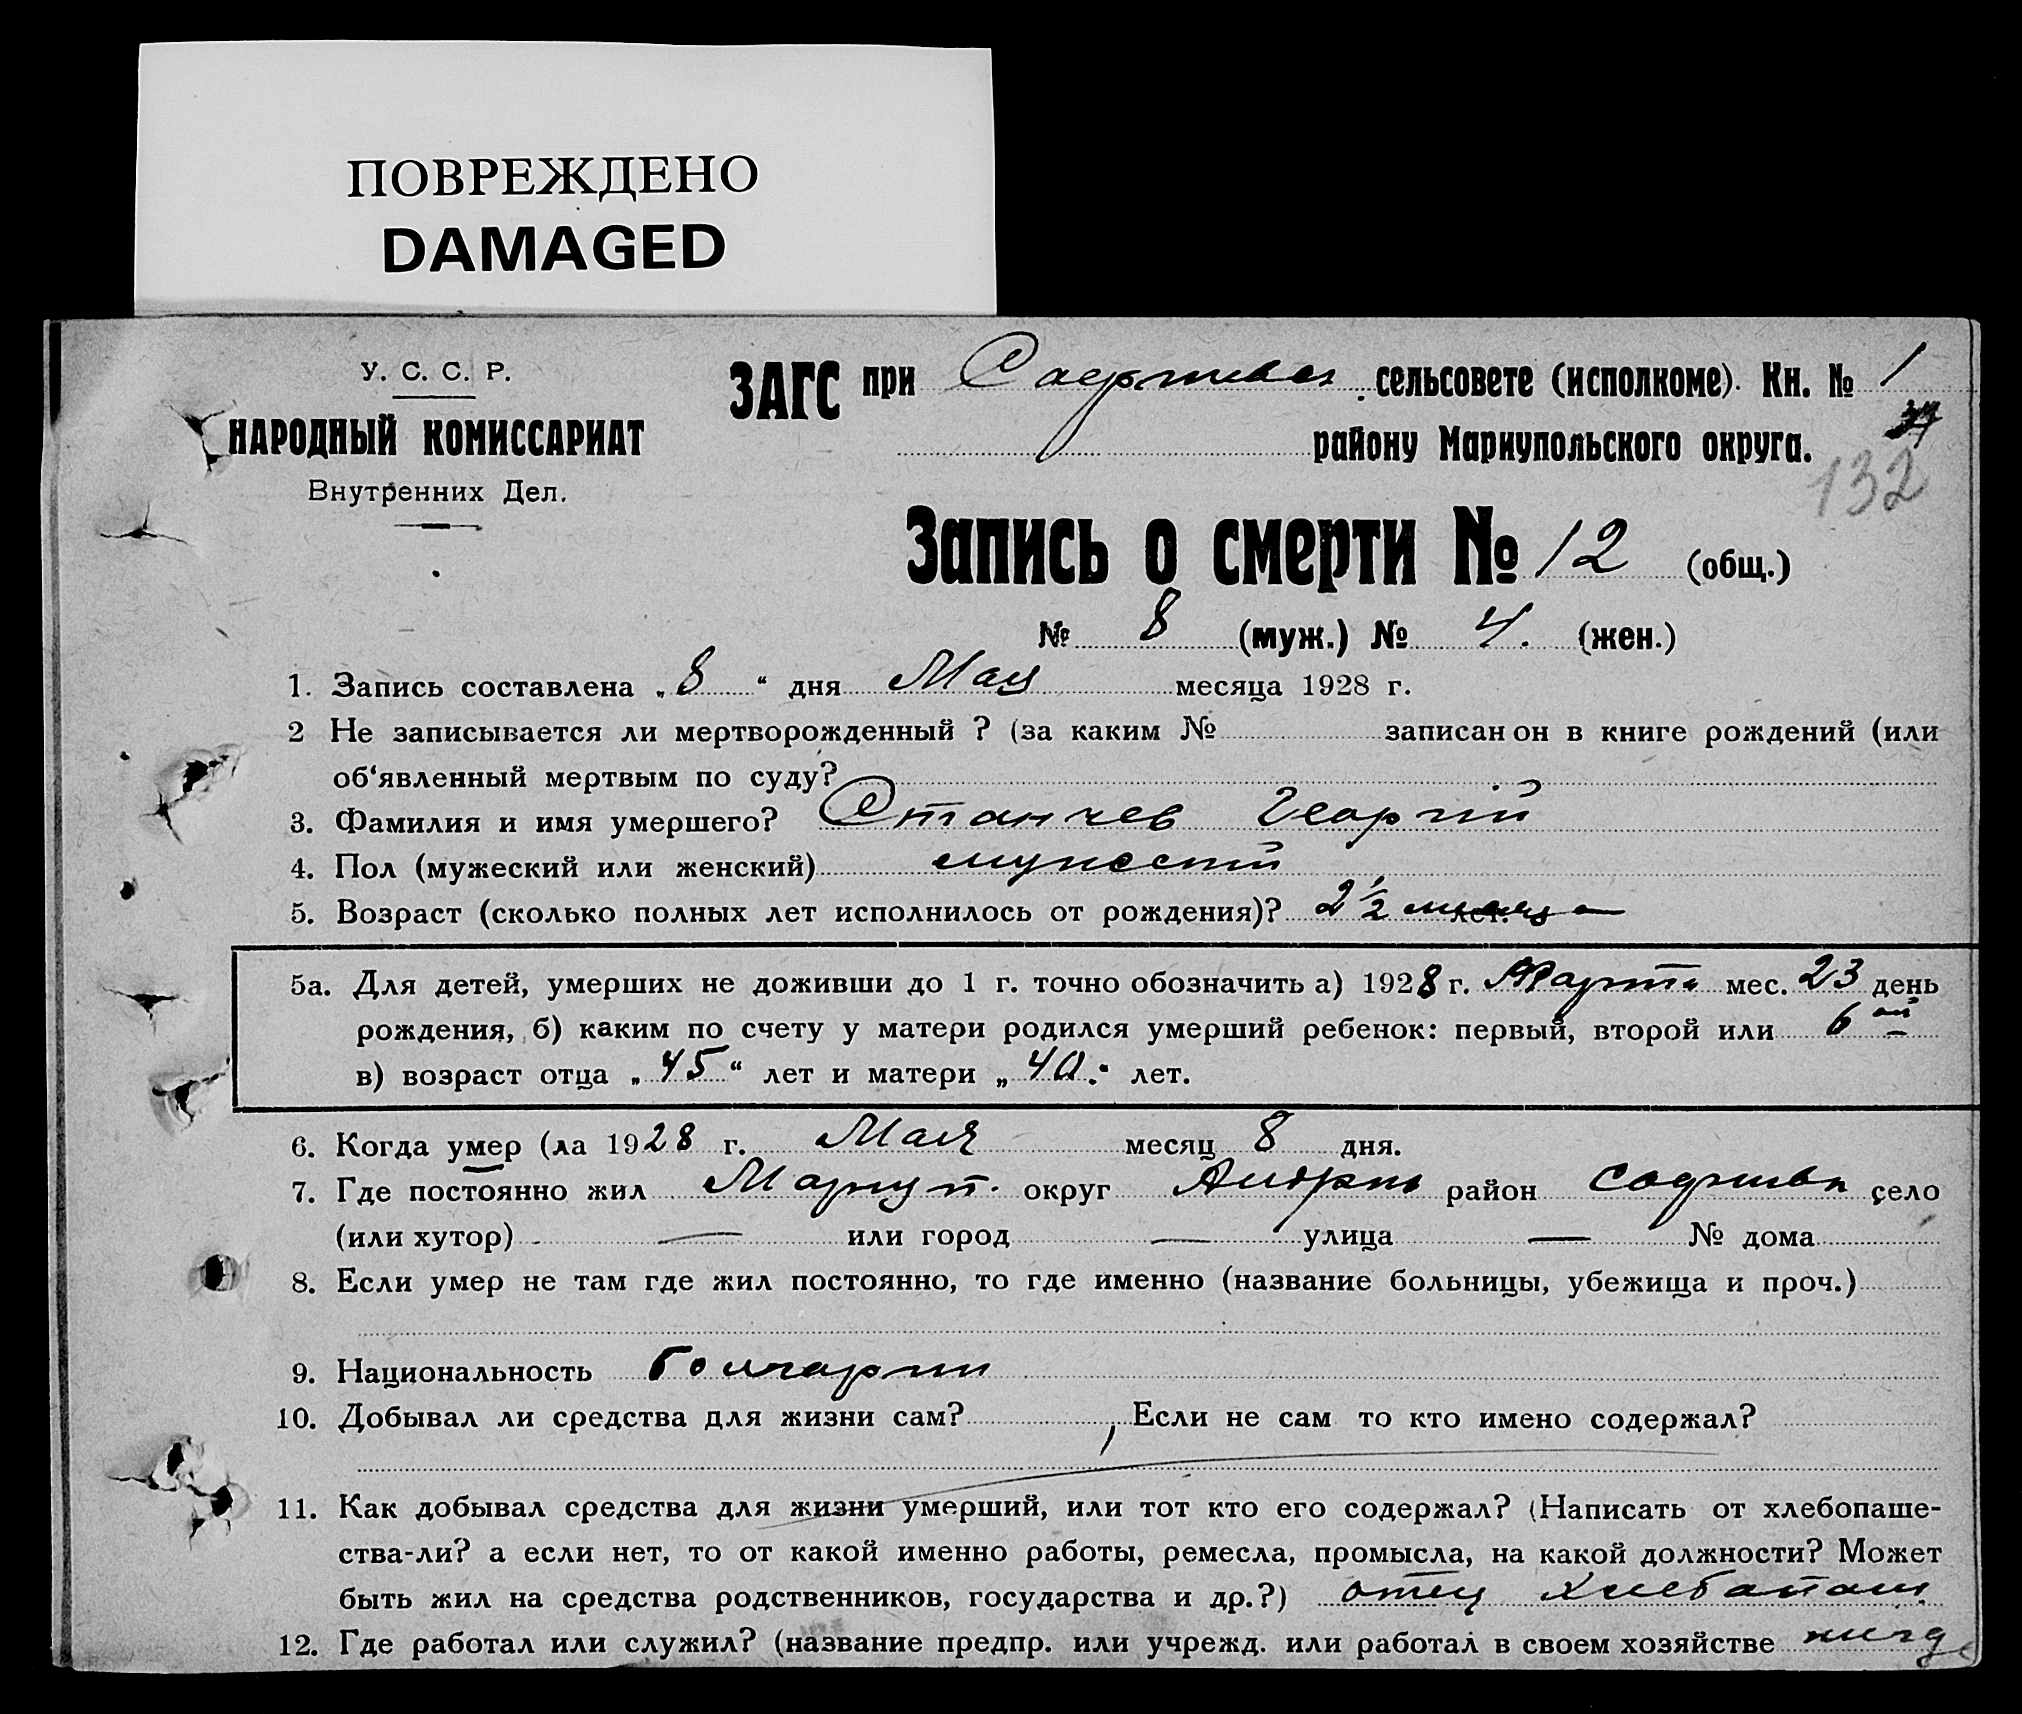 ПОВРЕЖДЕНО
DAMAGED
У. С. С. Р.
НАРОДНЫЙ КОМИССАРИАТ
Внутренних Дел.
ЗАГС при сельсовете (исполкоме). Кн. № 1
району Мариупольского округа.
132
Запись о смерти № 12 (общ.)
№ 8 (муж.) № 4. (жен.)
1. Запись составлена „8“ дня Мая месяца 1928 г.
2 Не записывается ли мертворожденный ? (за каким № записан он в книге рождений (или
об‘явленный мертвым по суду?
3. Фамилия и имя умершего? Станчев Георгий
4. Пол (мужеский или женский) мужеский
5. Возраст (сколько полных лет исполнилось от рождения)? 2 1/2 месяца
5а. Для детей, умерших не доживши до 1 г. точно обозначить а) 1928 г. Марта мес. 23 день
рождения, б) каким по счету у матери родился умерший ребенок: первый, второй или 6 ой
в) возраст отца „45“ лет и матери „40.“ лет.
6. Когда умер (ла 1928 г. Мая месяц 8 дня.
7. Где постоянно жил Мариуп. округ район село
(или хутор) — или город — улица — № дома
8. Если умер не там где жил постоянно, то где именно (название больницы, убежища и проч.)
9. Национальность болгарин
10. Добывал ли средства для жизни сам? Если не сам то кто имено содержал?
11. Как добывал средства для жизни умерший, или тот кто его содержал? (Написать от хлебопаше-
ства-ли? а если нет, то от какой именно работы, ремесла, промысла, на какой должности? Может
быть жил на средства родственников, государства и др.?) отец хлебопаш.
12. Где работал или служил? (название предпр. или учрежд. или работал в своем хозяйстве нигде